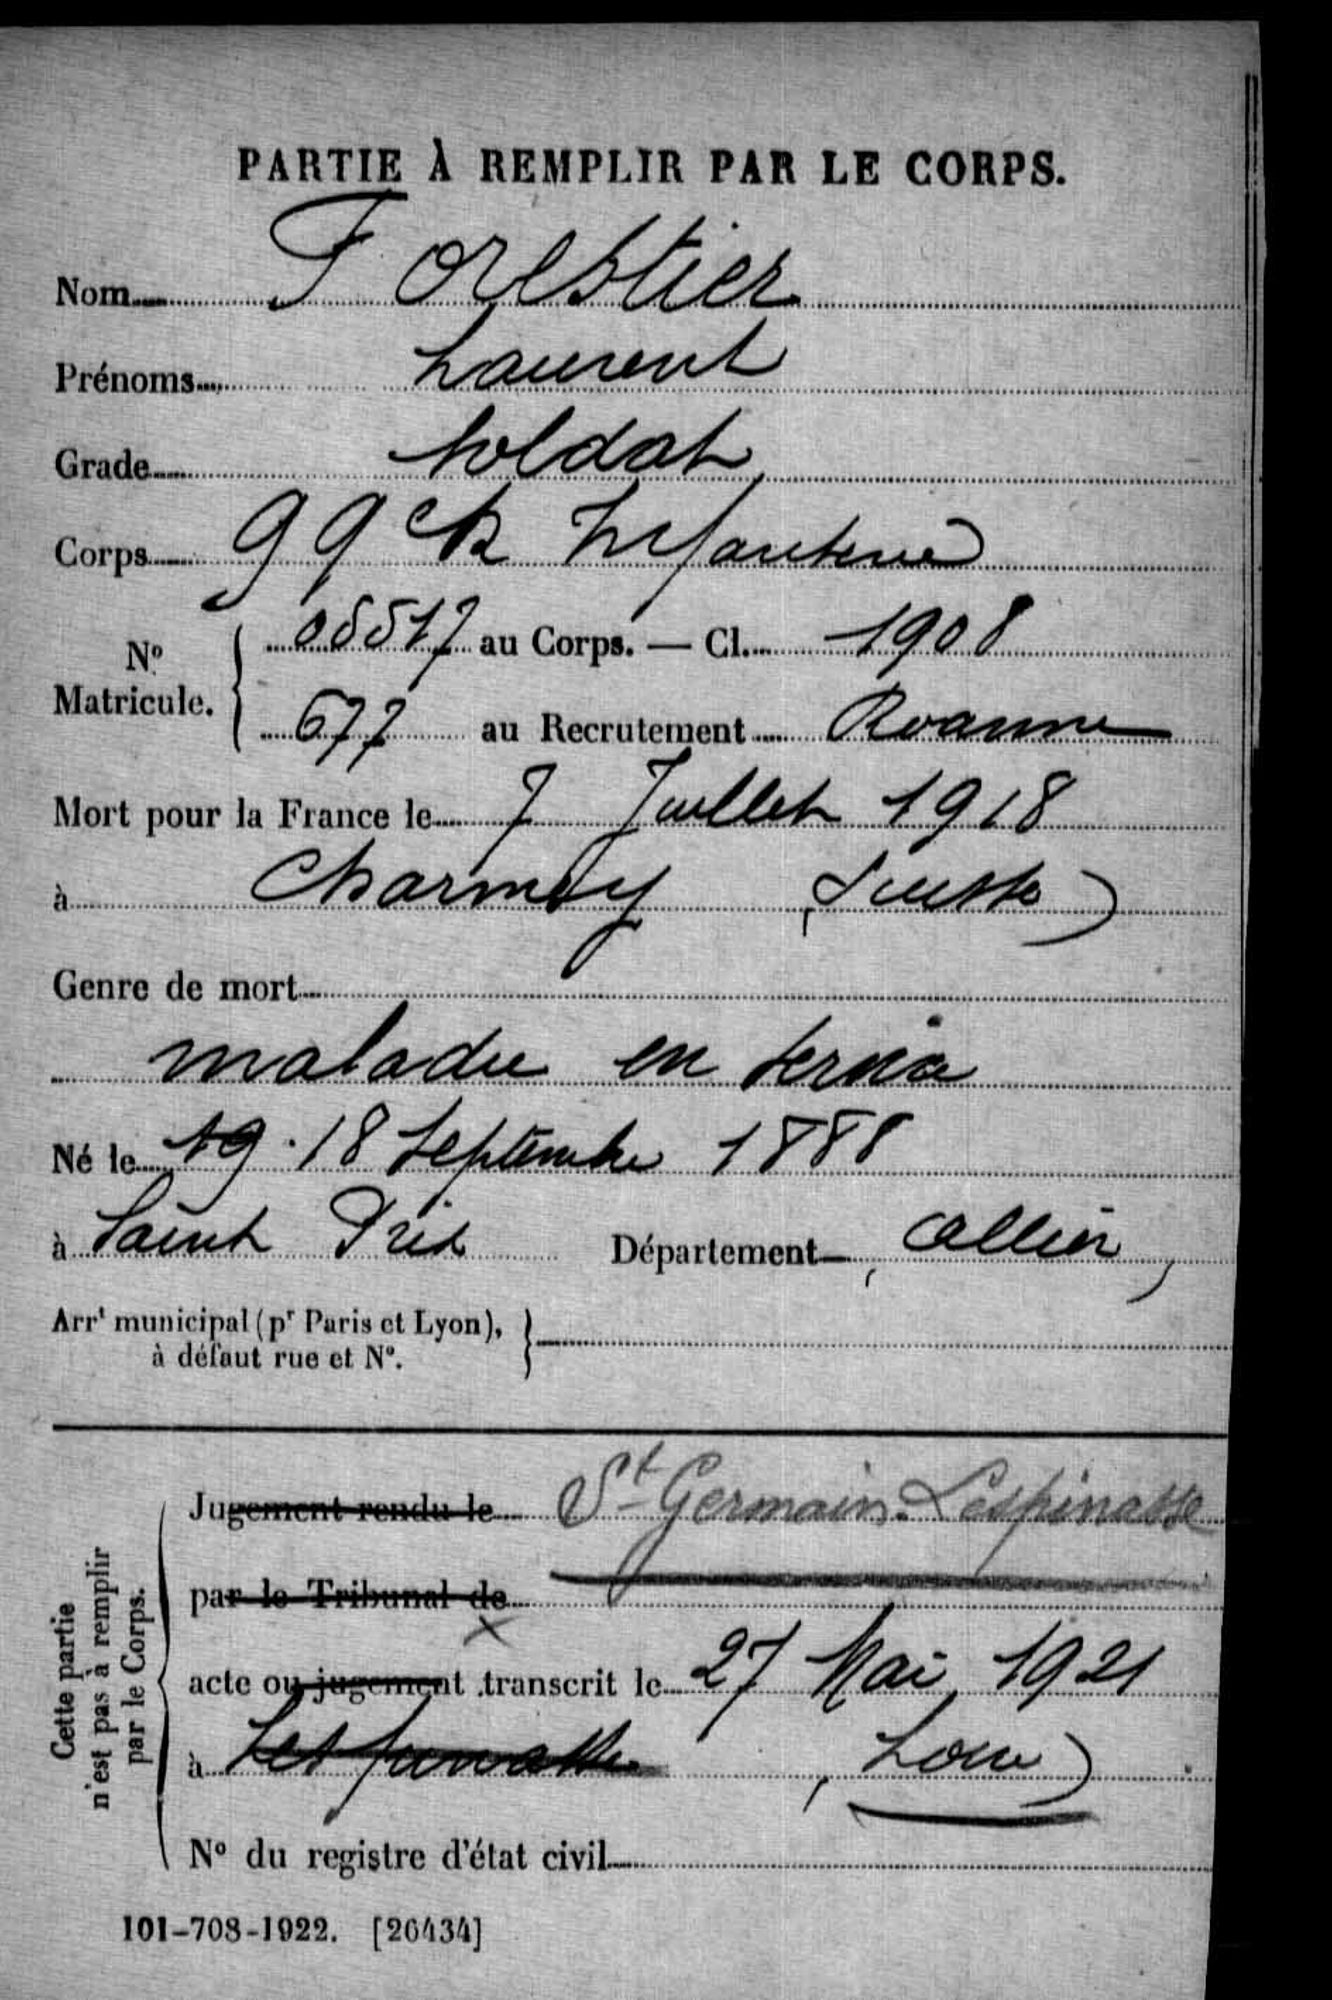 PARTIE À REMPLIR PAR LE CORPS.
Nom Forestier
Prénoms Laurent
Grade Soldat
Corps 99e R Infanterie
No Matricule. 05517 au Corps. — Cl. 1908
677 au Recrutement Roanne
Mort pour la France le 7 Juillet 1918
à Charmey (Suisse)
Genre de mort
maladie en service
Né le 19. 18 Septembre 1888
à Saint Prix Département (Allier)
Arrt municipal (pr Paris et Lyon),
à défaut rue et No.
Cette partie
n'est pas à remplir
par le Corps.
Jugement rendu le St Germain-Lespinasse
par le Tribunal de
acte ou jugement transcrit le 27 Mai 1921
à Lespinasse (Loire)
No du registre d'état civil
101-708-1922. [26434]